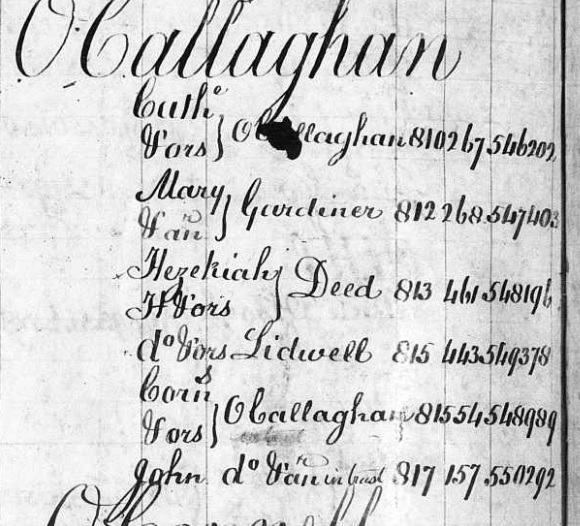 O'Callaghan
Cath.e
Vors } O'Callaghan 810 267 546202
Mary
Van } Gardiner 812 268 547403
Hezekiah
H Vors } Deed 813 461 548196
do Vors Lidwell 815 443 549378
Corn.s
Vors } O'Callaghan 815 54 548989
John do Van in trust 817 157 550292